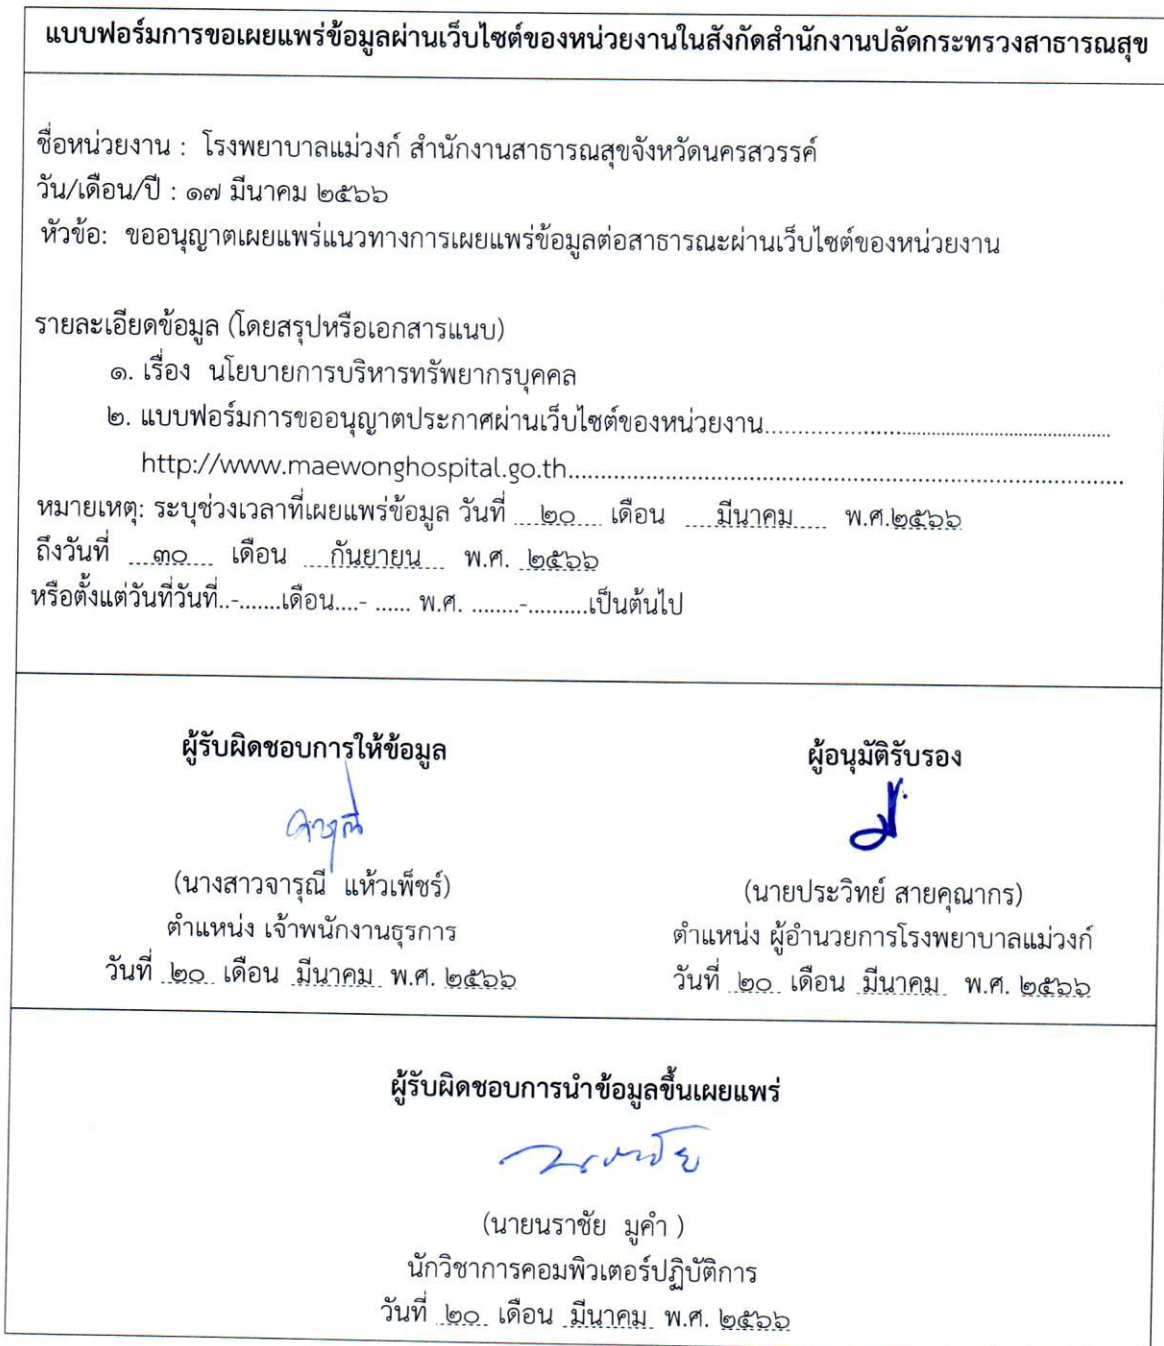 แบบฟอร์มการขอเผยแพร่ข้อมูลผ่านเว็บไซต์ของหน่วยงานในสังกัดสำนักงานปลัดกระทรวงสาธารณสุข
ชื่อหน่วยงาน : โรงพยาบาลแม่วงก์ สำนักงานสาธารณสุขจังหวัดนครสวรรค์
วัน/เดือน/ปี : ๑๗ มีนาคม ๒๕๖๖
หัวข้อ: ขออนุญาตเผยแพร่แนวทางการเผยแพร่ข้อมูลต่อสาธารณะผ่านเว็บไซต์ของหน่วยงาน
รายละเอียดข้อมูล (โดยสรุปหรือเอกสารแนบ)
๑. เรื่อง นโยบายการบริหารทรัพยากรบุคคล
๒. แบบฟอร์มการขออนุญาตประกาศผ่านเว็บไซต์ของหน่วยงาน..........................................................................
http://www.maewonghospital.go.th..........................................................................................................
หมายเหตุ: ระบุช่วงเวลาที่เผยแพร่ข้อมูล วันที่ ....๒๐..... เดือน .....มีนาคม..... พ.ศ.๒๕๖๖
ถึงวันที่ .....๓๐..... เดือน .....กันยายน.... พ.ศ. ๒๕๖๖
หรือตั้งแต่วันที่วันที่..-.......เดือน....- ...... พ.ศ. ........-..........เป็นต้นไป
ผู้รับผิดชอบการให้ข้อมูล
จารุณี
(นางสาวจารุณี แห้วเพ็ชร์)
ตำแหน่ง เจ้าพนักงานธุรการ
วันที่ ..๒๐.. เดือน .มีนาคม. พ.ศ. ๒๕๖๖
ผู้อนุมัติรับรอง
(นายประวิทย์ สายคุณากร)
ตำแหน่ง ผู้อำนวยการโรงพยาบาลแม่วงก์
วันที่ ..๒๐.. เดือน .มีนาคม. พ.ศ. ๒๕๖๖
ผู้รับผิดชอบการนำข้อมูลขึ้นเผยแพร่
(นายนราชัย มูคำ )
นักวิชาการคอมพิวเตอร์ปฏิบัติการ
วันที่ ..๒๐.. เดือน .มีนาคม. พ.ศ. ๒๕๖๖